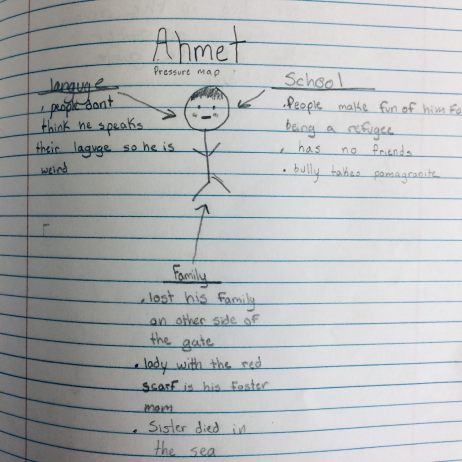 Ahmet
Pressure map
languge
. people dont
think he speaks
their laguge so he is
weird
School
. People make fun of him Fo
being a refugee
. has no friends
. bully takes pomagranite
Family
. lost his family
on other side of
the gate
. lady with the red
scarf is his foster
mom
. Sister died in
the sea